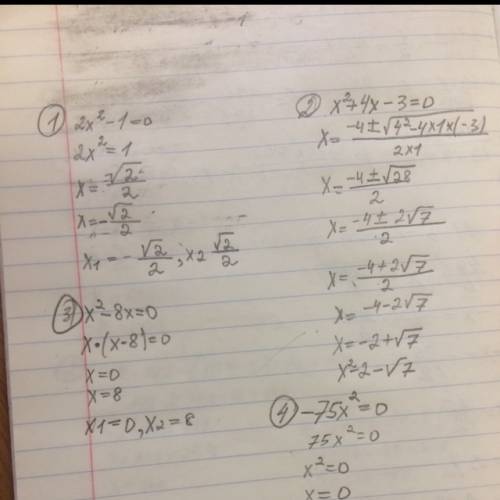 ① 2x²-1=0
2x²=1
x=-√2/2
x=-√2/2
x₁=-√2/2, x2 √2/2
② x²+4x-3=0
x=-4±√4²-4x1x(-3)/2x1
x=-4±√28/2
x=-4±2√7/2
x=-4+2√7/2
x=-4-2√7
x=-2+√7
x²-2-√7
③ x²-8x=0
x•(x-8)=0
x=0
x=8
x1=0, x2=8
④ -75x²=0
75x²=0
x²=0
x=0